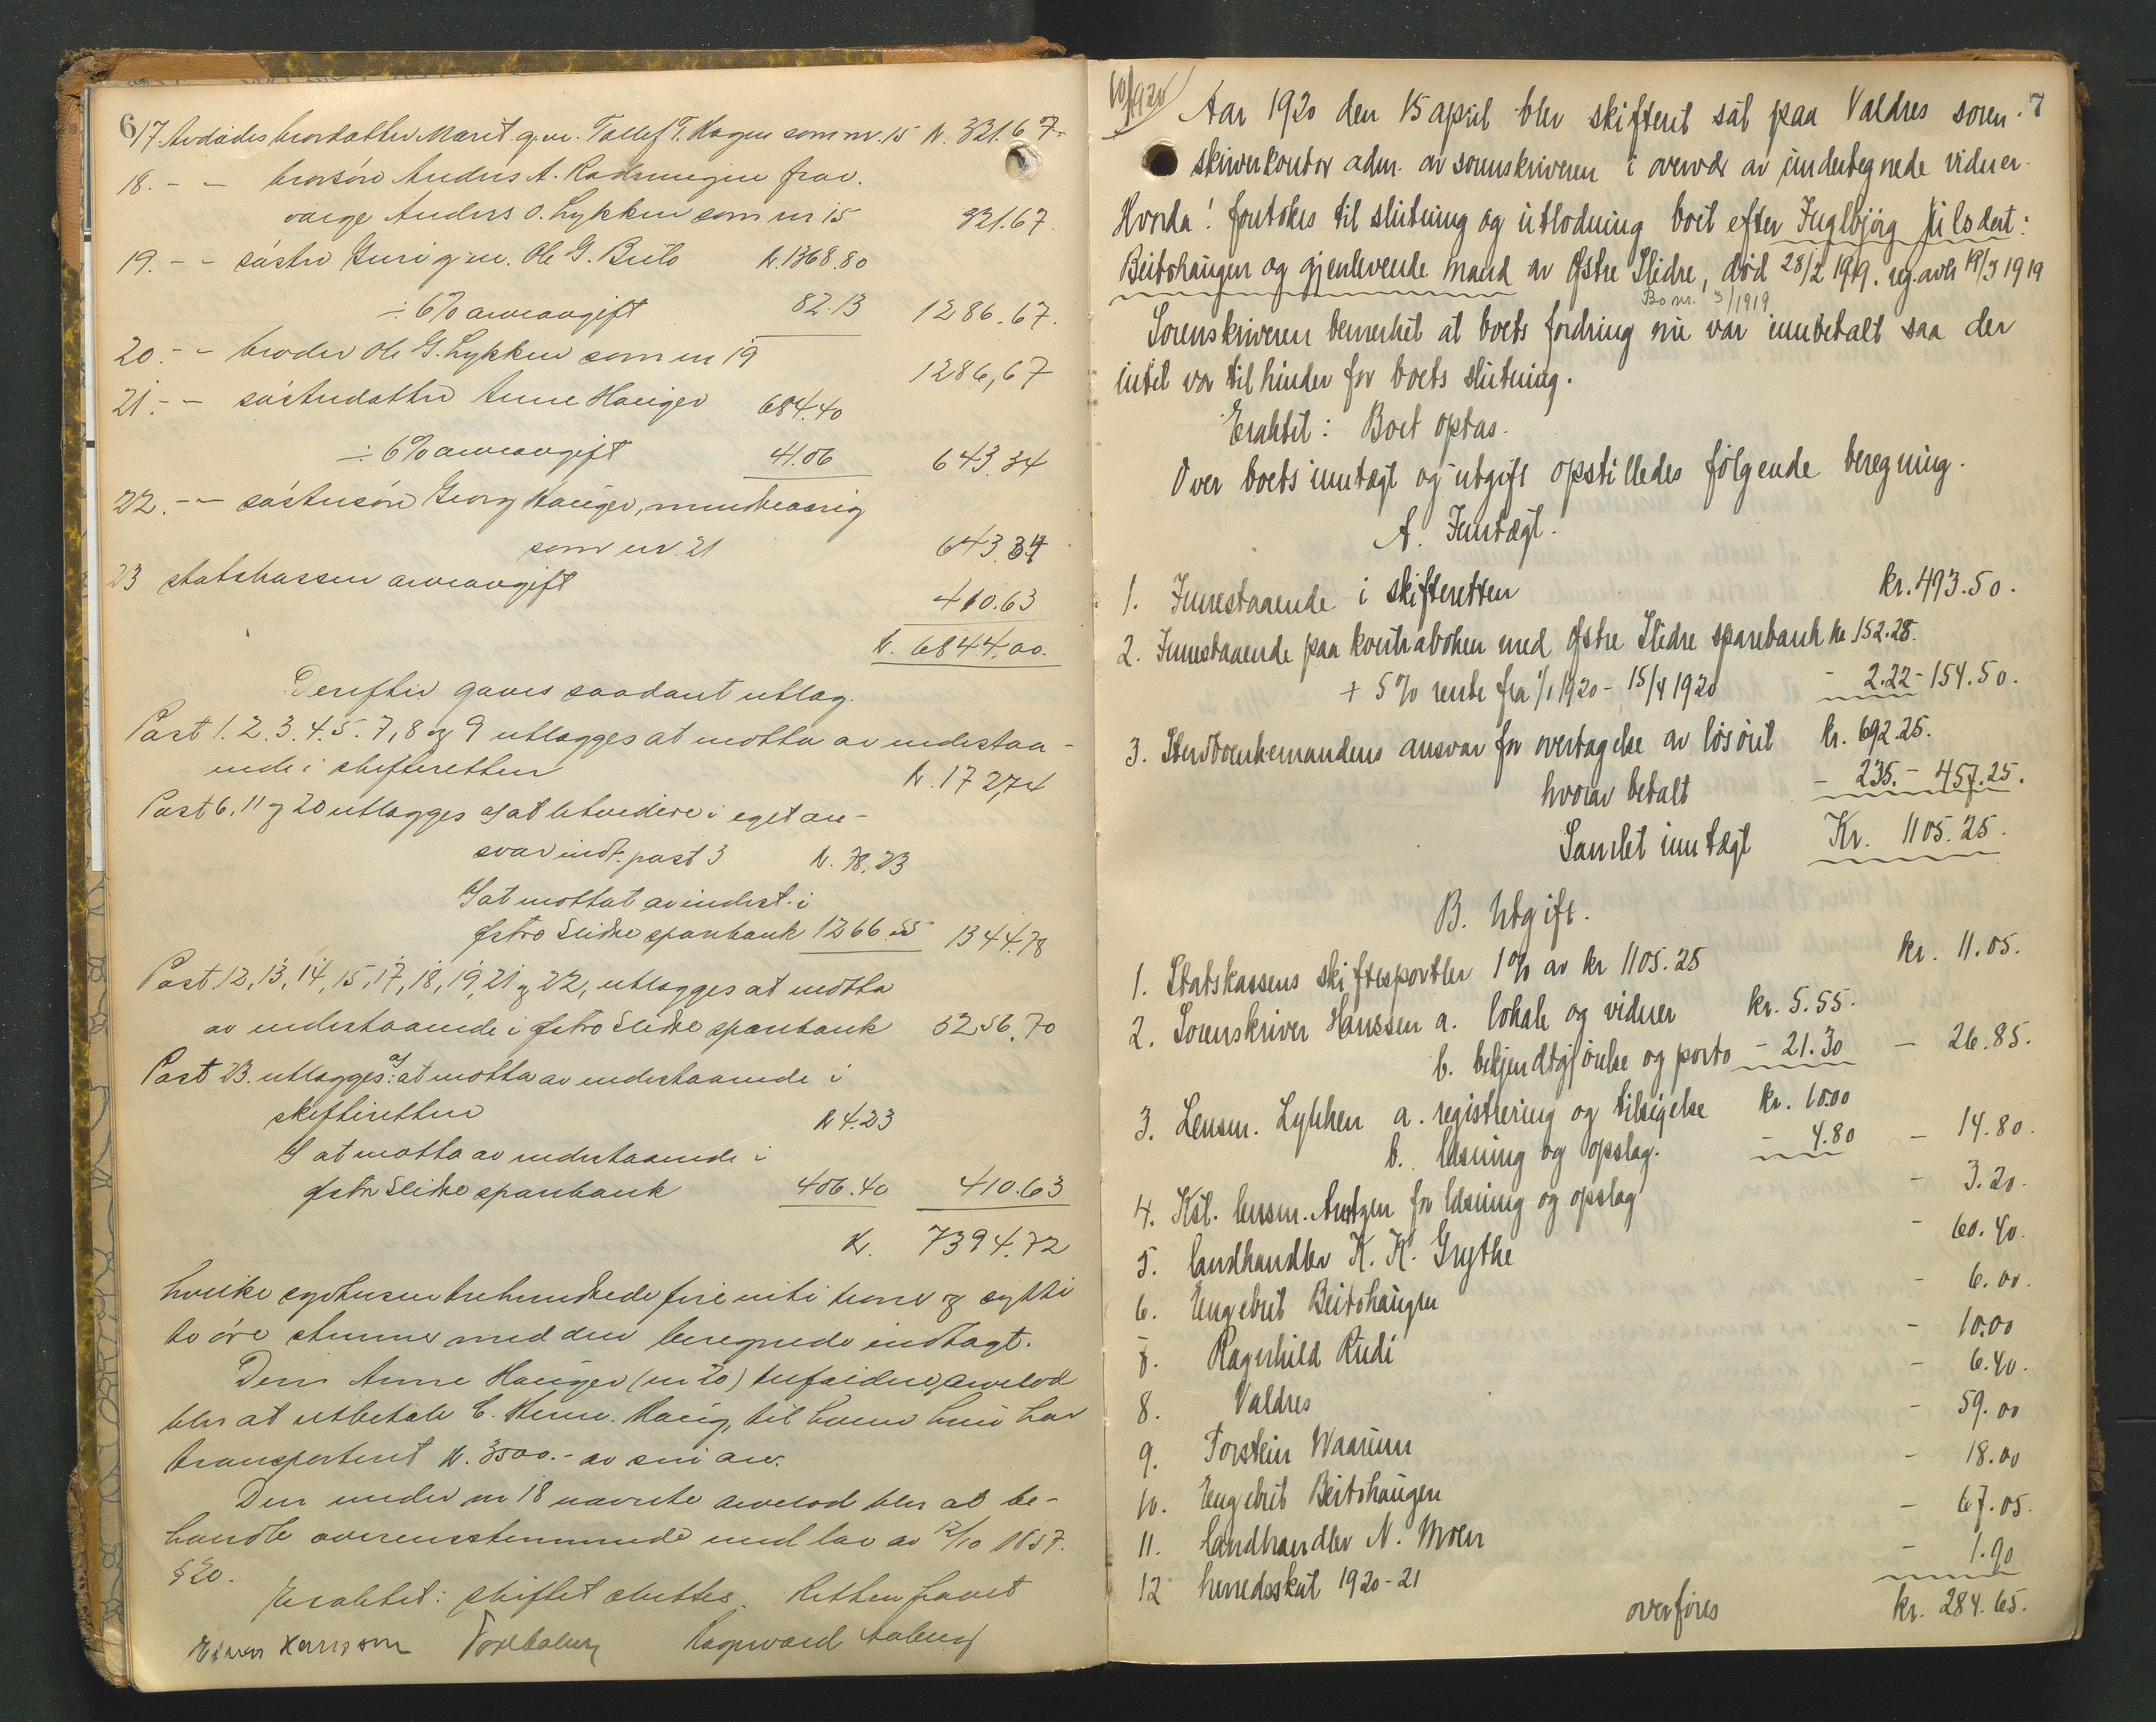 6
17. Avdødes brordatter Marit g.m. Tollef T. Hagen som nr. 15 kr. 321.67.
18. - - brorsøn Andris A. Rødningen frav.
værge Anders O. Lykken som nr 15 321.67.
19. - - søster Guri g.m. Ole G. Beito kr. 1368.80
÷ 6% arveavgift 82.13 1286.67.
20. - - broder Ole G. Lykken som nr 19 1286,67
21. - - søsterdatter Anne Hauger 684.40
÷ 6% arveavgift 41.06 643.34
22. - - søstersøn Georg Hauger, mindreaarig
som nr. 21 643.34
23 statskassen arveavgift 410.63
kr. 6844.00.
Derefter gaves saadant utlæg.
Post 1. 2. 3. 4. 5. 7, 8 og 9 utlægges at motta av indestaa-
ende i skifteretten kr. 172,74
Post 6, 11 og 20 utlægges a) at likvidere i eget an-
svar indt. post 3 kr. 78.23
b) at motta av indest. i
Østre Slidre sparebank 1266.55 1344.78
Post 12, 13, 14, 15, 17, 18, 19, 21 og 22, utlægges at motta
av indestaaende i Østre Slidre sparebank 5256.70
Post 23. utlægges a) at motta av indestaaende i
skifteretten kr 4.23
b at motta av indestaaende i
Østre Slidre sparebank 406.40 410.63
kr. 7394.72
hvilke syvtusen trehundrede fire niti kroner og sytti
to øre stemmer med den beregnede indtægt.
Den Anne Hauger (nr 20) tilfaldne arvelod
blir at utbetale C. Henr. Haug, til hvem hun har
transportert kr. 3500.- av sin arv.
Den under nr 18 nævnte arvelod blir at be-
handle overensstemmende med lov av 12/10 1857.
§ 20.
Eraktet: skiftet sluttes. Retten hævet
Einar Hanssen Ragnvald Aaberg
7
10/1920
Aar 1920 den 15 april blev skifteret sat paa Valdres soren-
skriverkontor adm. av sorenskriveren i overvær av undertegnede vidner.
Hvorda! foretokes til slutning og utlodning boet efter Ingebjørg Nilsdat:
Beitohaugen og gjenlevende mand av Østre Slidre, død 28/2 1919. reg. avh 19/3 1919
Bo nr. 5/1919
Sorenskriveren bemerket at boets fordring nu var innbetalt saa der
intet var til hinder for boets slutning.
Eraktet: Boet optas.
Over boets inntægt og utgift opstilledes følgende beregning.
A. Inntægt.
1. Innestaaende i skifteretten kr. 493.50.
2. Innestaaende paa kontraboken med Østre Slidre sparebank kr 152.28.
+ 5% rente fra 1/1 1920 - 15/4 1920 - 2.22 - 154.50.
3. Stervboenkemandens ansvar for overtagelse av løsøret kr. 692.25.
hvorav betalt - 235. - 457.25.
Samlet inntægt Kr. 1105.25.
B. Utgift.
1. Statskassens skiftesportler 1% av kr 1105.25 kr. 11.05.
2. Sorenskriver Hanssen a. lokale og vidner kr. 5.55.
b. bekjendtgjørelse og porto - 21.30 - 26.85.
3. Lensm. Lykken a. registrering og tilsigelse kr. 10.00
b. læsning og opslag. - 4.80 - 14.80.
4. Kst. lensm. Arntzen for læsning og opslag - 3.20.
5. landhandler K. K. Grythe - 60.40.
6. Engebret Beitohaugen - 6.00.
7. Ragnhild Rudi - 10.00
8. Valdres - 6.40.
9. Torstein Waarum - 59.00
10. Engebret Beitohaugen - 18.00
11. landhandler N. Moen - 67.05.
12 herredsskat 1920-21 - 1.90
overføres kr. 284.65.